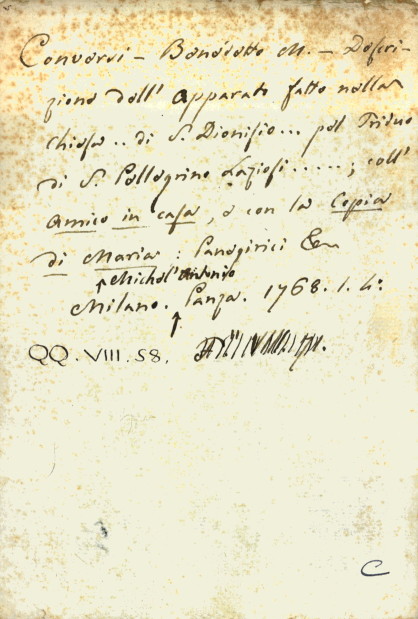 Conversi – Benedetto M. – Descri-
zione dell' apparato fatto nella
Chiesa .. di S. Dionisio ... pel Triduo
di S. Pellegrino Laziosi .....; coll'
Amico in casa, e con la Copia
di Maria: Panegirici &c
Michel' Antonio
Milano. Panza. 1768. 1. 4:
QQ. VIII. 58.
C